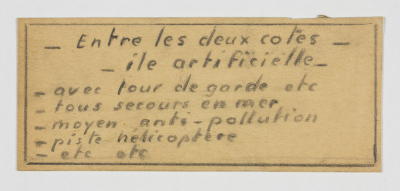 - Entre les deux cotes -
- île artificielle -
- avec tour de garde etc
- tous secours en mer
- moyen anti-pollution
- piste hélicoptère
- etc etc